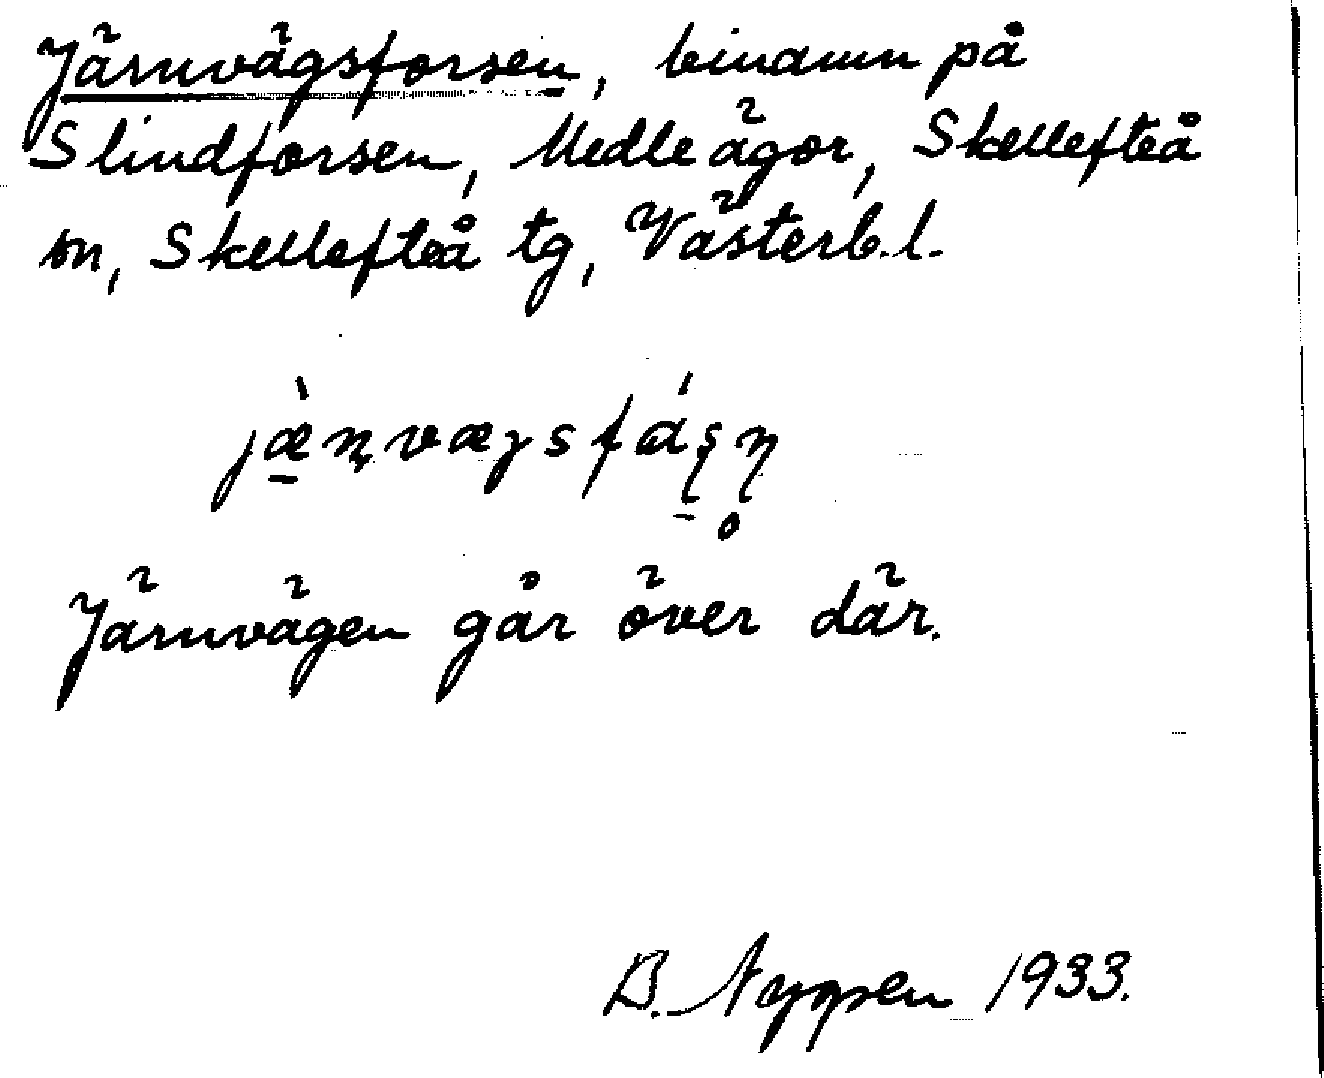 Järnvägsforsen, binamn på
Slindforsen, Medle ägor, Skellefteå
sn, Skellefteå tg, Västerb. l.
Järnvägen går över där.
B. 1933.